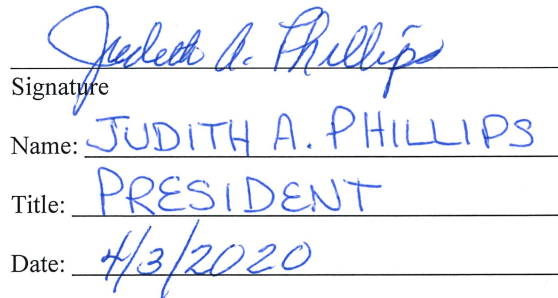 Judith A. Phillips
Signature
Name: JUDITH A. PHILLIPS
Title: PRESIDENT
Date: 4/3/2020